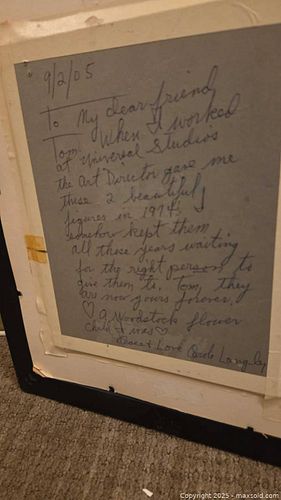 9/2/05
To My dear friend
Tom: When I worked
at Universal Studios
the Art Director gave me
these 2 beautiful
figures in 1974. I
somehow kept them
all those years waiting
for the right person to
give them to. Tom, they
are now yours forever.
♡ A Woodstock flower
child I was ♡
Peace & Love Langley
Copyright © 2025 - maxsold.com